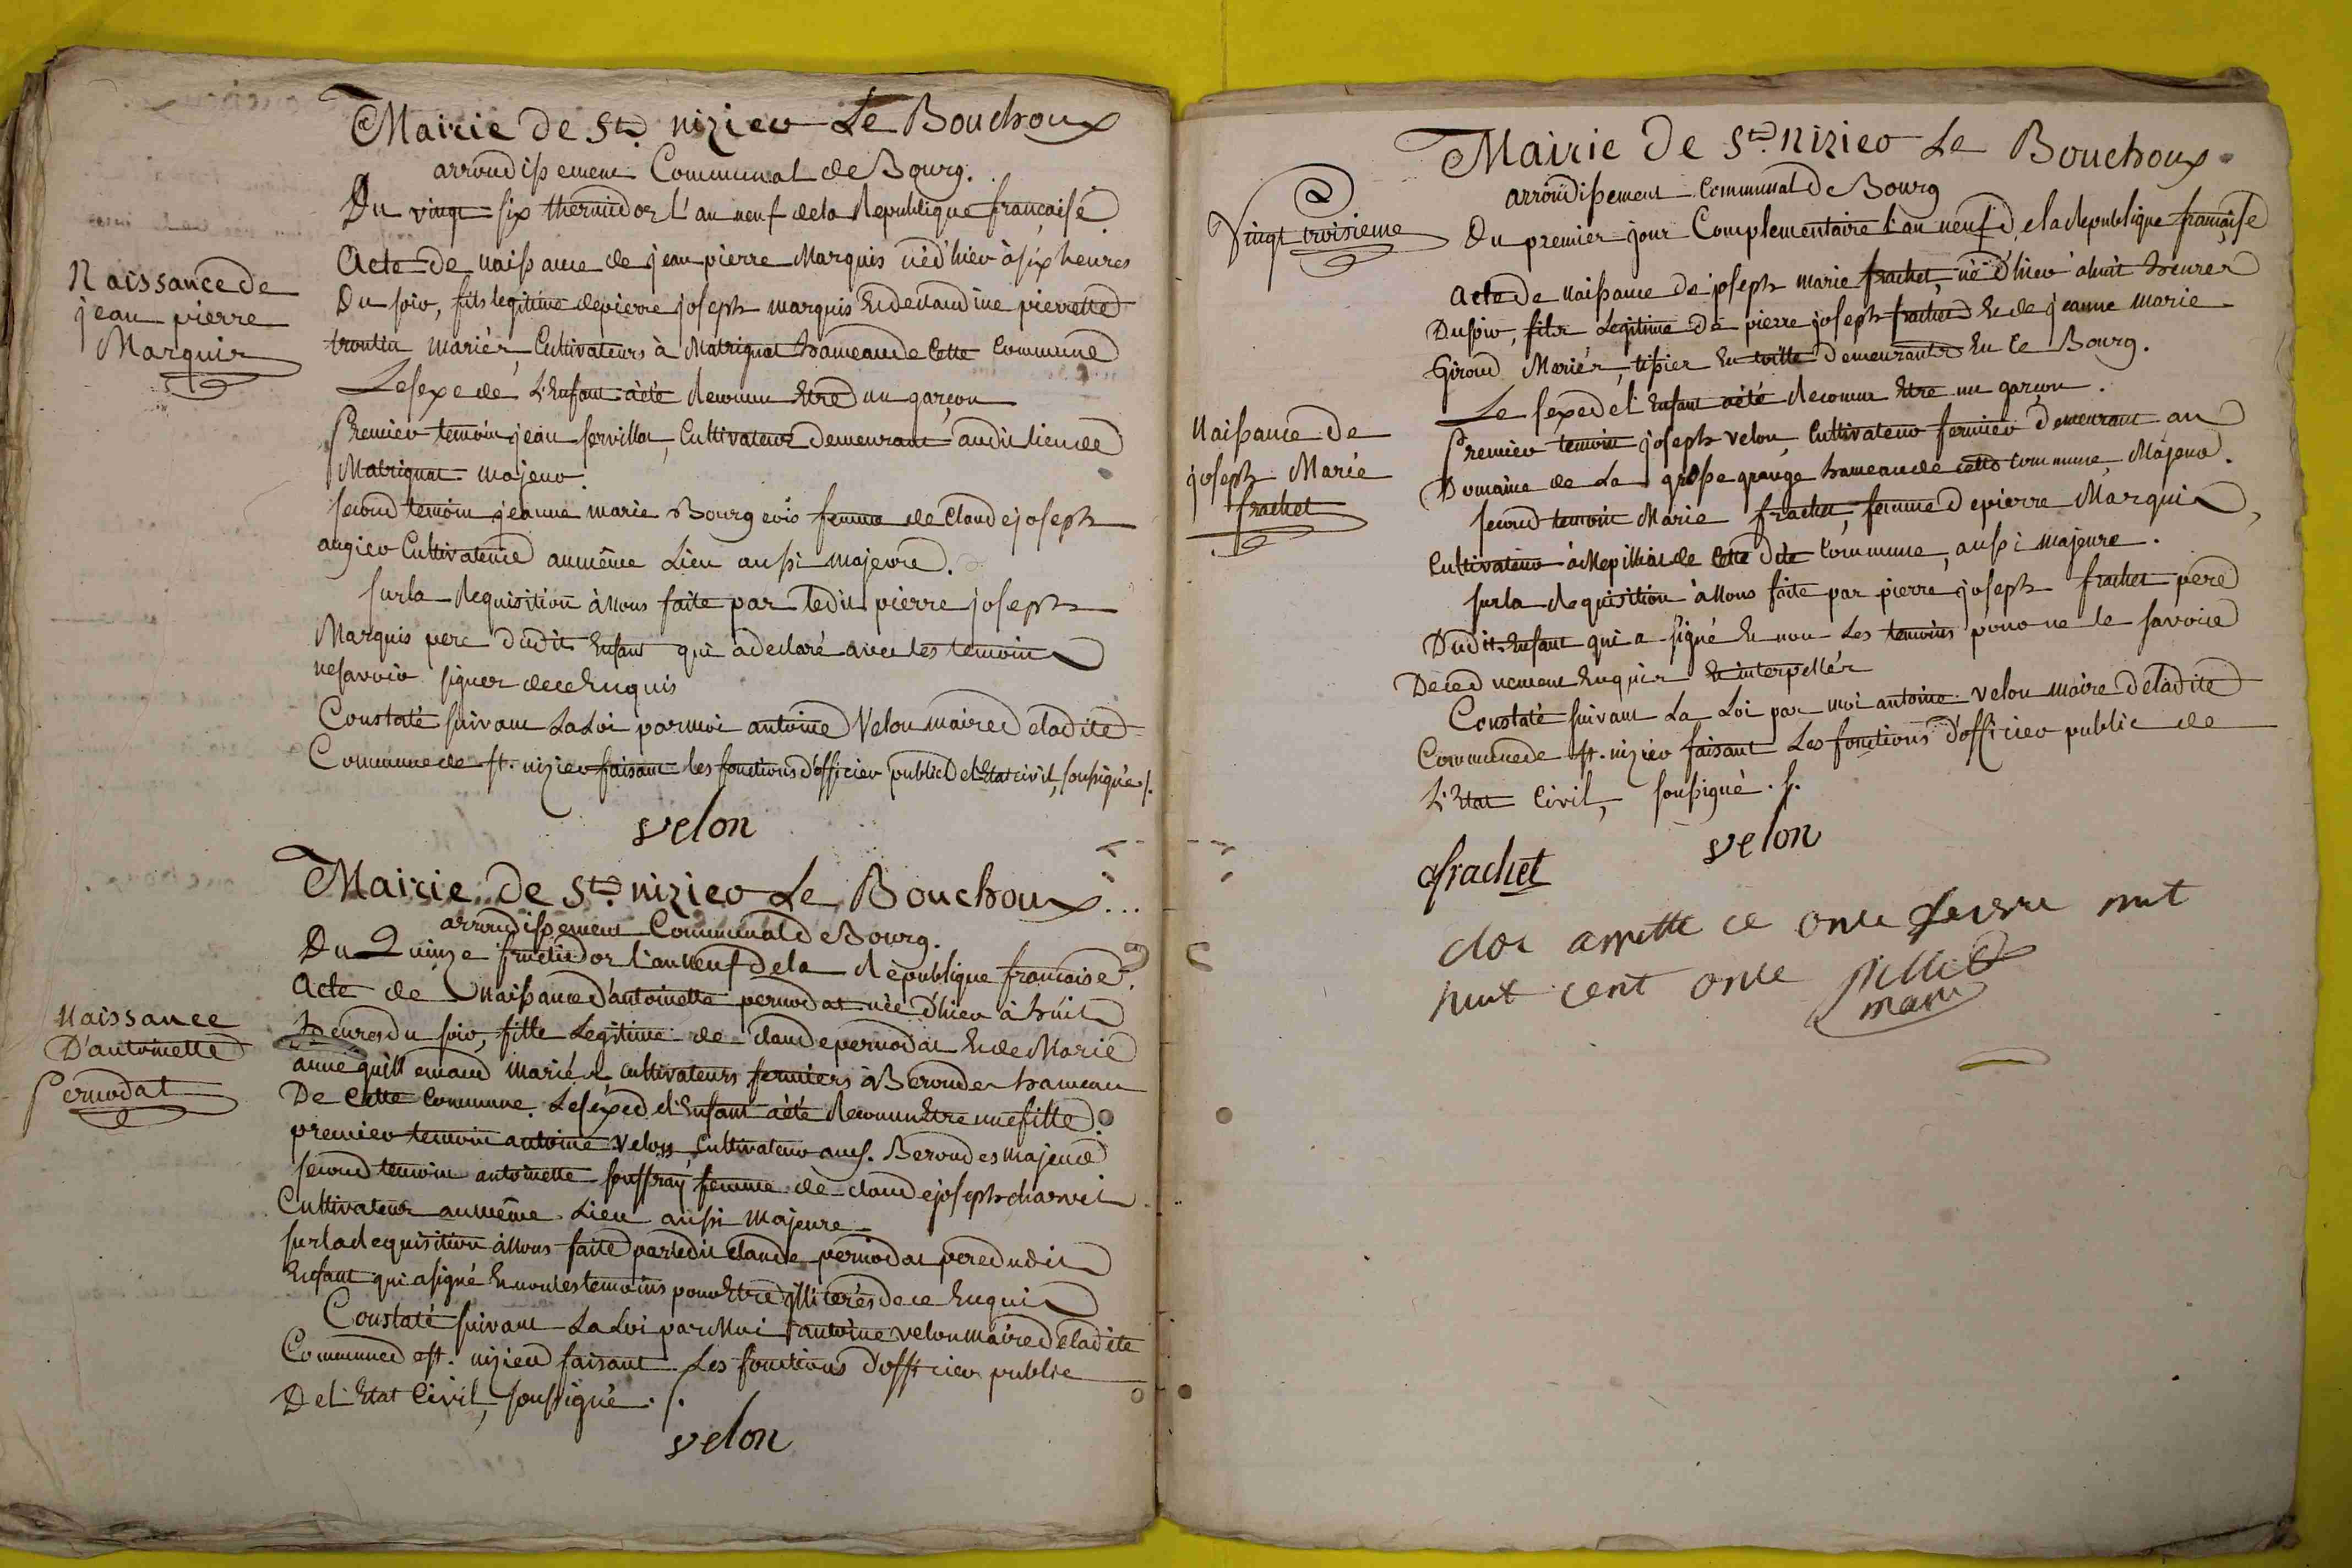 Mairie de St. nizier Le Bouchoux
arrondissement Communal de Bourg.
Du vingt six thermidor l'an neuf de la Republique française
Naissance de
jean pierre
Marquis
Acte de naissance de jean pierre Marquis né d'hier à six heures
Du soir, fils legitime de pierre joseph marquis Et de claudine pierrette
troutin mariés, Cultivateurs à Matrignat hameau de Cette Commune
Le sexe de L'Enfant à été Reconnu Etre un garçon
Premier temoin jean servilla, Cultivateur Demeurant audit lieu de
Matrignat majeur.
second temoin jeanne marie Bourgeois femme de Claude joseph
augier Cultivateur au même Lieu aussi majeure.
sur la Requisition à Nous faite par ledit pierre joseph
Marquis pere dudit Enfant qui a declaré avec les temoins
ne savoir signer de ce Enquis
Constaté suivant La Loi par moi antoine Velon maire de ladite
Commune de st. nizier faisant les fonctions d'officier public de l'Etat civil, soussigné ./.
velon
Mairie de St. nizier Le Bouchoux...
arrondissement Communal de Bourg.
Du Quinze fructidor l'an neuf de la Republique francaise.
Naissance
D'antoinette
Pernodat
Acte de Naissance d'antoinette pernodat née d'hier à huit
heures du soir, fille Legitime de claude pernodat Et de Marie
anne quillemaud mariés, cultivateurs fermiers à Beroudes hameau
De Cette Commune. Le sexe de l'Enfant à été Reconnu Etre une fille.
premier temoin antoine velon, Cultivateur auxs. Beroudes majeur
second temoin antoinette souffray femme de claude joseph charvet
Cultivateur au même Lieu aussi Majeure
sur la Requisition à Nous faite par ledit Claude pernodat pere dudit
Enfant qui a signé Et non les temoins pour Etre illiterés de ce Enquis
Constaté suivant La Loi par Moi antoine velon maire de ladite
Commune de st. nizier faisant Les fonctions d'officier public
De l'Etat Civil, soussigné ./.
velon
Mairie De St. Nizier Le Bouchoux.
arrondissement Communal de Bourg
Vingt troisieme
Du premier jour Complementaire l'an neuf de la Republique française
Naissance de
joseph Marie
frachet
Acte De Naissance de joseph marie frachet, né d'hier à huit heures
Du soir, fils Legitime de pierre joseph frachet Et de jeanne marie
Giroud Mariés, tissier En toille demeurants En Ce Bourg.
Le sexe de l'Enfant a été Reconnu Etre un garçon.
Premier temoin joseph velon, Cultivateur fermier demeurant au
Domaine de La grosse grange hameau de cette Commune, Majeur.
second temoin Marie frachet, femme de pierre Marquis,
Cultivateur à Mepilliat de Cette dite Commune, aussi majeure.
sur la Requisition à Nous faite par pierre joseph frachet pere
Dudit Enfant qui a signé Et non Les temoins pour ne le savoir
De ce duement Enquis Et interpellés
Constaté suivant La Loi par moi antoine velon maire de ladite
Commune de st. nizier faisant Les fonctions d'officier public de
L'Etat Civil, soussigné ./.
velon
frachet
clos arretté ce onze fevrier mil
huit cent onze
maire